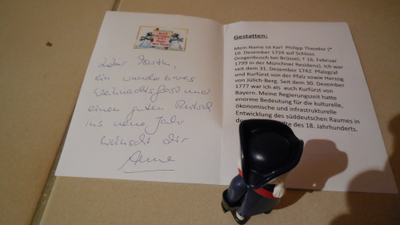 ein wunderbares
Weihnachtsfest und
einen guten Rutsch
ins neue Jahr
wünscht Dir
Gestatten:
Mein Name ist Karl Philipp Theodor (*
10. Dezember 1724 auf Schloss
Drogenbosch bei Brüssel; † 16. Februar
1799 in der Münchner Residenz). Ich war
seit dem 31. Dezember 1742 Pfalzgraf
und Kurfürst von der Pfalz sowie Herzog
von Jülich-Berg. Seit dem 30. Dezember
1777 war ich als auch Kurfürst von
Bayern. Meine Regierungszeit hatte
enorme Bedeutung für die kulturelle,
ökonomische und infrastrukturelle
Entwicklung des süddeutschen Raumes in
des 18. Jahrhunderts.